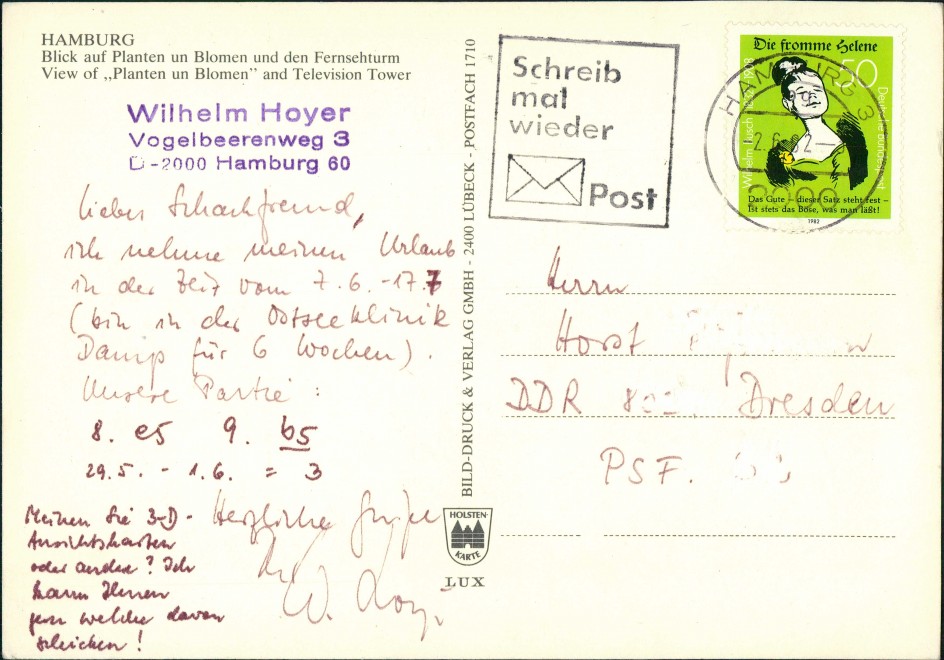 HAMBURG
Blick auf Planten un Blomen und den Fernsehturm
View of „Planten un Blomen” and Television Tower
Wilhelm Hoyer
Vogelbeerenweg 3
D-2000 Hamburg 60
Lieber Schachfreund,
ich nehme meinen Urlaub
in der Zeit vom 7.6.-17.7
(bin in der Ostseeklinik
Damp für 6 Wochen).
Unsere Partie:
8. e5 9. b5
29.5. - 1.6. = 3
Herzliche Grüße
Ihr
W. Hoyer
Meinen Sie 3-D-
Ansichtskarten
oder andere? Ich
kann Ihnen
gern welche davon
schicken!
BILD-DRUCK & VERLAG GMBH - 2400 LÜBECK - POSTFACH 1710
HOLSTEN-
KARTE
LUX
Schreib
mal
wieder
Post
HAMBURG 3
2000
Die fromme Helene
50
Wilhelm Busch 1832-1908
Deutsche Bundespost
Das Gute – dieser Satz steht fest –
Ist stets das Böse, was man läßt!
1982
Herrn
Horst
DDR Dresden
PSF.